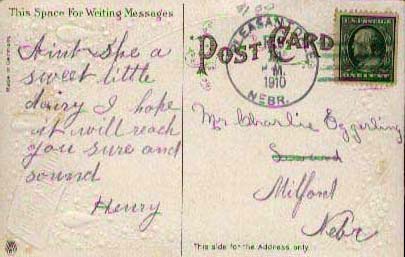 This Space For Writing Messages
Aint she a
sweet little
dairy I hope
it will reach
you sure and
sound
Henry
Made in Germany
POST CARD
PLEASANT DALE
M.
1910
NEBR.
Mr Charlie Eggerling
Seward
Milford
Nebr
This side for the Address only.